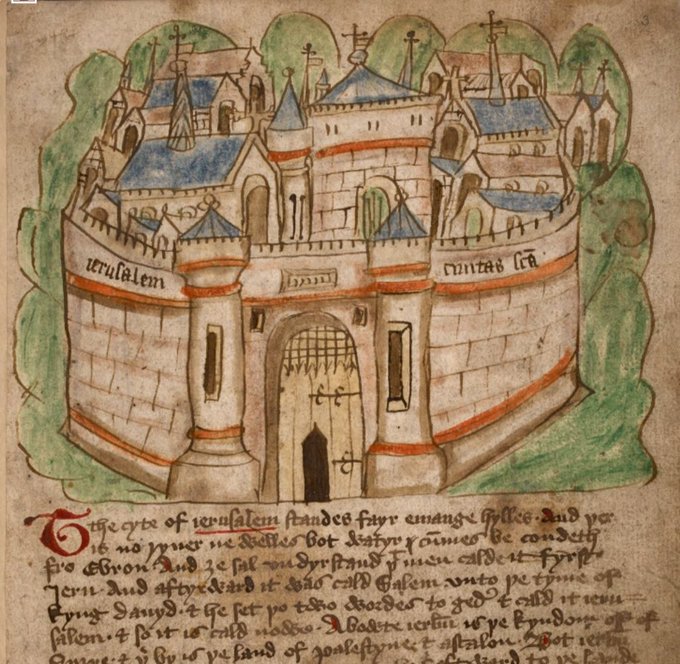 3
ierusalem
ciuitas scā
The cyte of ierusalem standes fayr emange hylles. And þer
is no ryuer ne welles bot watyr þt cūmes be condeth
fro Ebron. And ze sal vndyrstand þt men calde it fyrst
Iern. And aftyrward it was cald Salem vnto þe tyme of
kyng dauyd. & he set þo two wordes to ged' & cald it ieru=
salem. & so it is cald nowe. Abowte ierlm is þe kyndom off of
& þer by is þe land of palestyne. & astalon. Bot